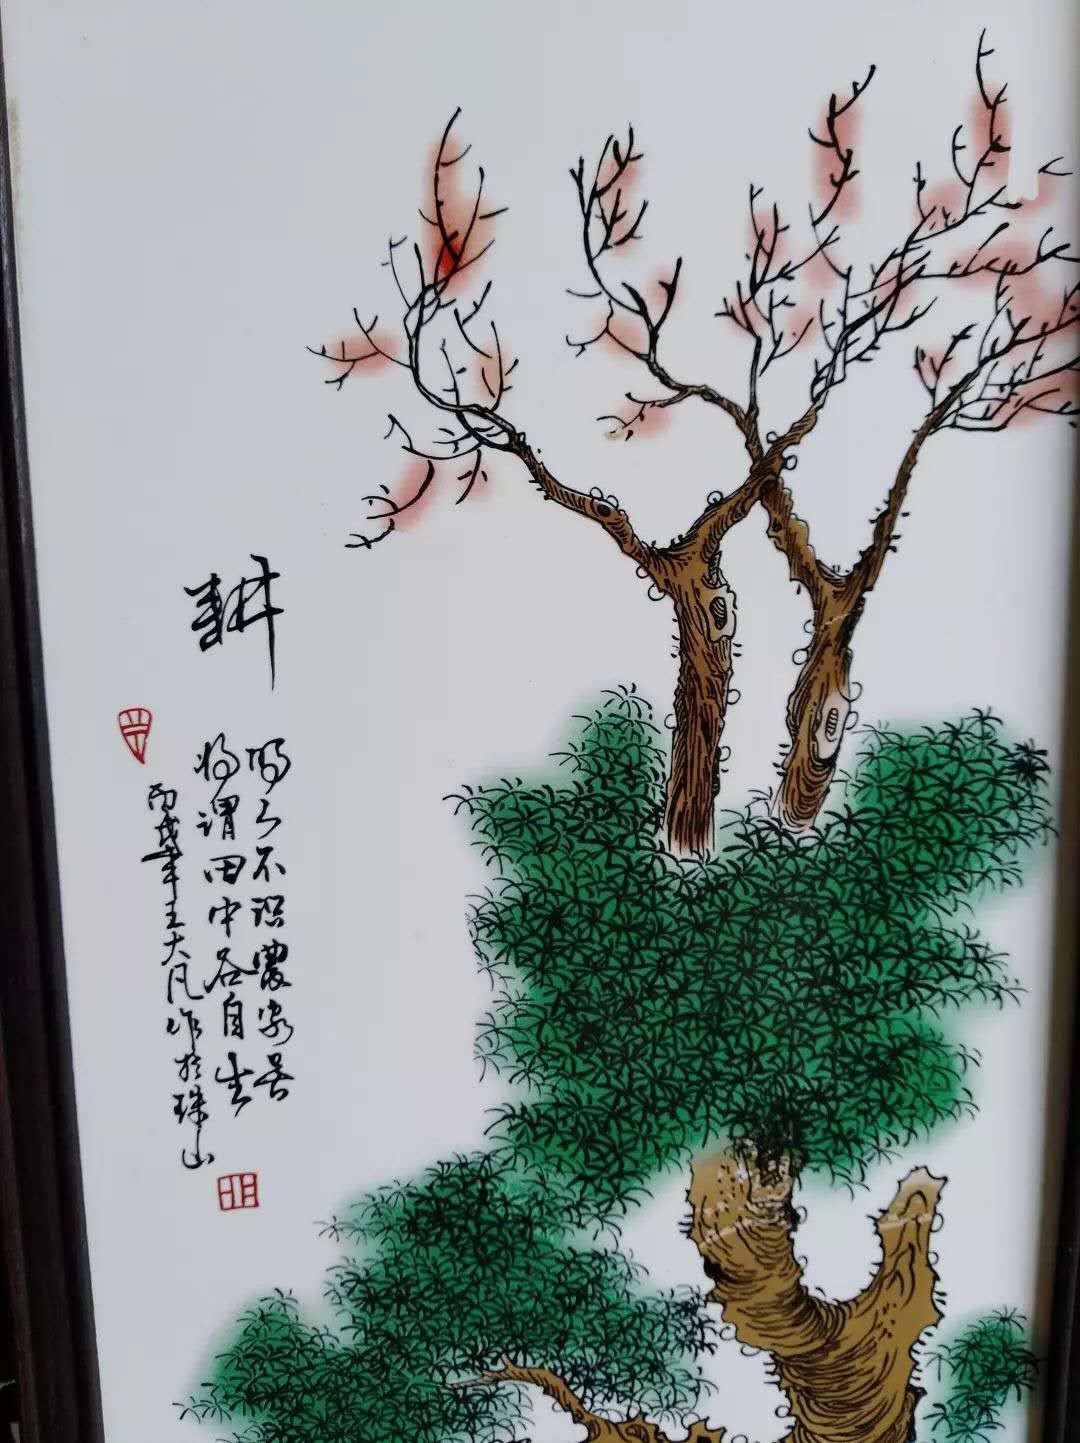 耕
時人不识農家苦
将謂田中谷自生
丙戌年王大凡作於珠山